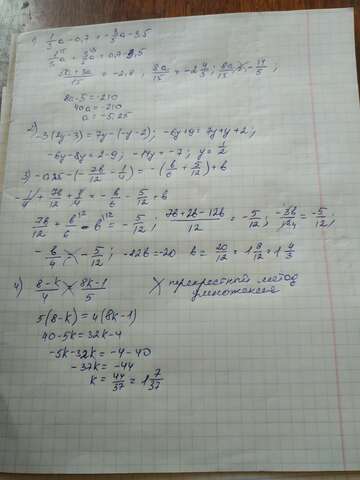 1) 1/3a - 0,7 = -1/5a - 3,5
1/3a + 1/5a = 0,7 - 3,5
(5a + 3a)/15 = -2,8; 8a/15 = -2 4/5; 8a/15 = -14/5;
8a·5 = -210
40a = -210
a = -5,25
2) -3(2y-3) = 7y-(-y-2); -6y+9 = 7y+y+2;
-6y-8y = 2-9; -14y = -7; y = 1/2
3) -0,25-(-7b/12 - 1/4) = -(b/6 + 5/12)+b
-1/4 + 7b/12 + 1/4 = -b/6 - 5/12 + b
7b/12 + b/6 - b = -5/12; (7b+2b-12b)/12 = -5/12; -3b/12 = -5/12;
-b/4 = -5/12; -12b = -20 b = 20/12 = 1 8/12 = 1
4) (8-k)/4 = (8k-1)/5 X перекрестный метод
умножения
5(8-k) = 4(8k-1)
40-5k = 32k-4
-5k-32k = -4-40
-37k = -44
k = 44/37 = 1 7/37